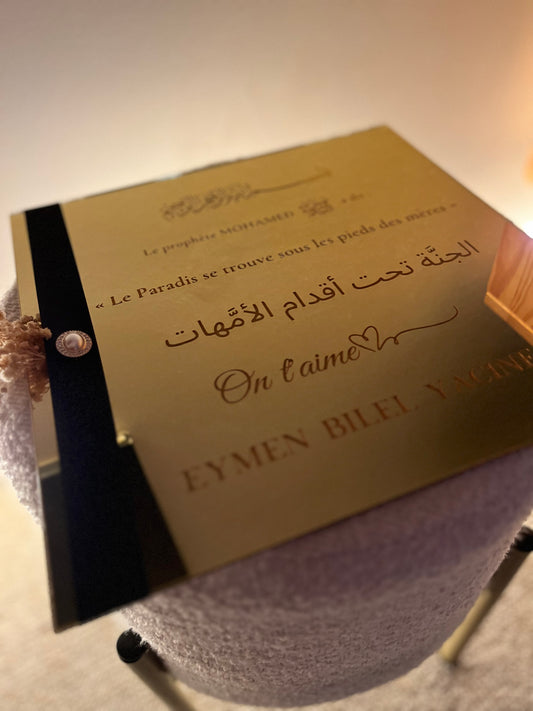 Le prophète MOHAMED ﷺ a dit
« Le Paradis se trouve sous les pieds des mères »
الجنَّة تحت أقدام الأمَّهات
On t'aime
EYMEN BILEL YACINE